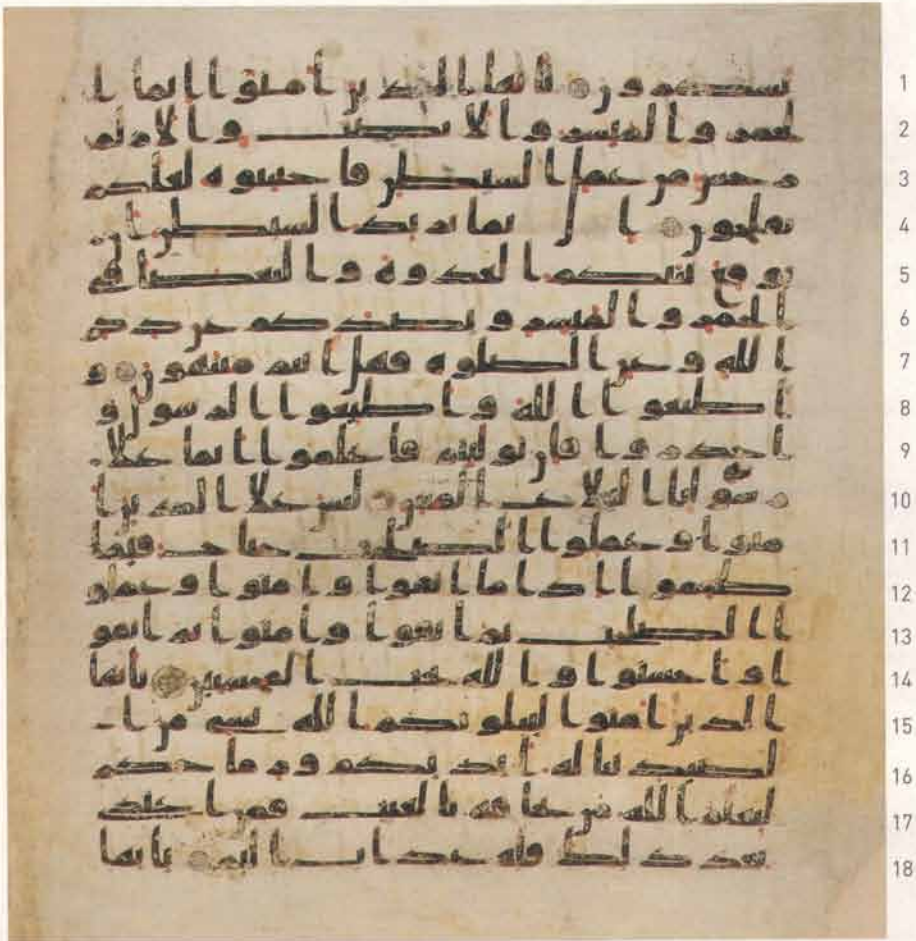 1 تشكرون يايها الذين امنوا انما ا
2 لخمر والميسر والانصب والازلم
3 رجس من عمل الشيطن فاجتنبوه لعلكم
4 تفلحون انما يريد الشيطن ان
5 يوقع بينكم العدوه والبغضا في
6 الخمر والميسر ويصدكم عن ذكر
7 الله وعن الصلوه فهل انتم منتهون و
8 اطيعوا الله واطيعوا الرسول و
9 احذروا فان توليتم فاعلموا انما علا
10 رسولنا البلاغ المبين ليس علا الذين ا
11 منوا وعملوا الصلحت جناح فيما
12 طعموا اذا ما اتقوا وامنوا وعملو
13 ا الصلحت ثم اتقوا وامنوا ثم اتقو
14 ا واحسنوا والله يحب المحسنين يايها
15 الذين امنوا ليبلونكم الله بشي من ا
16 لصيد تناله ايديكم ورماحكم
17 ليعلم الله من يخافه بالغيب فمن اعتدى
18 بعد ذلك فله عذاب اليم يايها